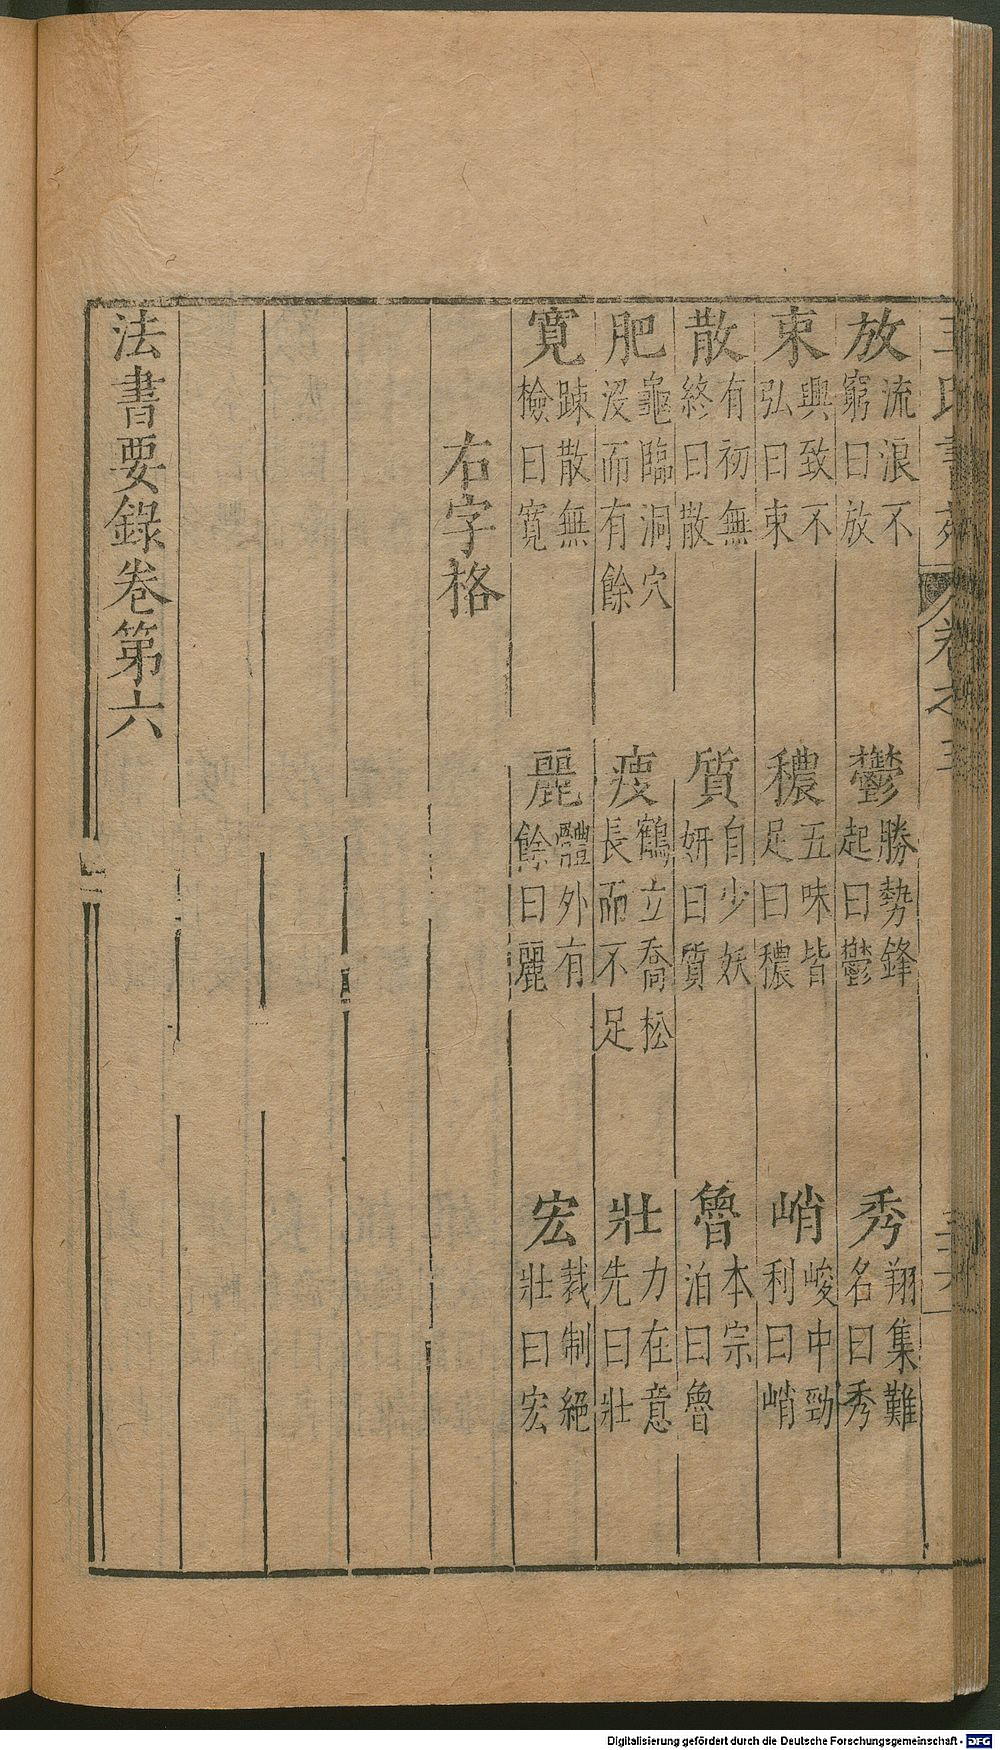 王氏書苑 卷之五
放 流浪不窮曰放 鬱 勝勢鋒起曰鬱 秀 翔集難名曰秀
束 興致不弘曰束 穠 五味皆足曰穠 峭 峻中勁利曰峭
散 有初無終曰散 質 自少妖妍曰質 魯 本宗泊曰魯
肥 龜臨洞穴沒而有餘 瘦 鶴立喬松長而不足 壯 力在意先曰壯
寬 踈散無檢曰寬 麗 體外有餘曰麗 宏 裁制絕壯曰宏
右字格
法書要錄卷第六
Digitalisierung gefördert durch die Deutsche Forschungsgemeinschaft - DFG